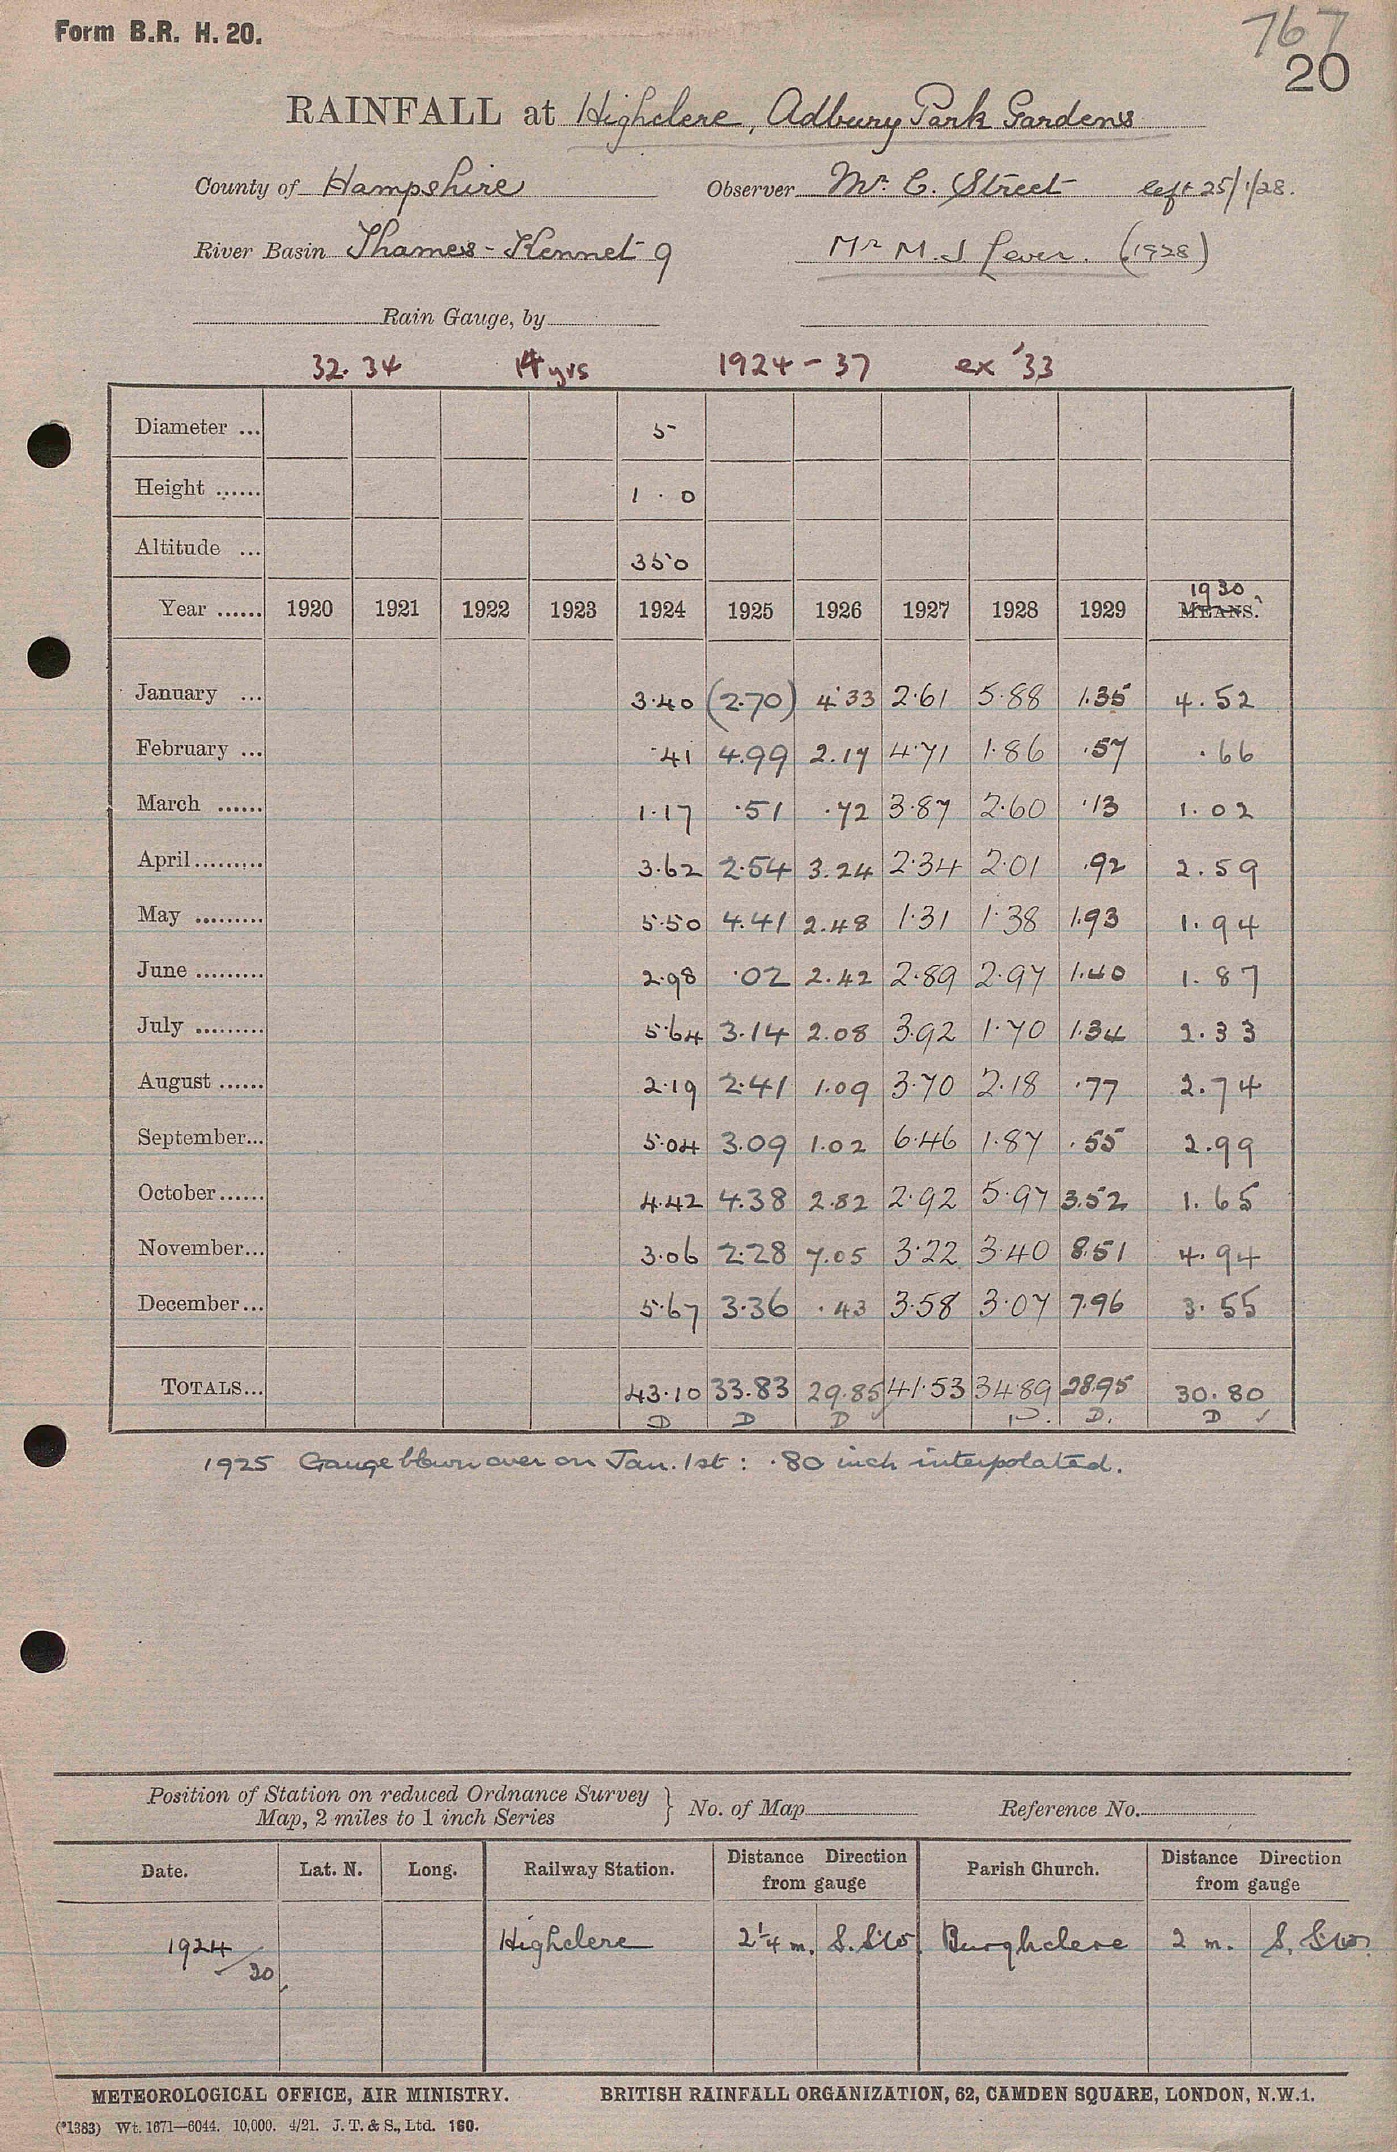 Form B.R. H. 20.
767
20
RAINFALL at Highclere, Adbury Park Gardens
County of Hampshire Observer Mr. C. Street left 25/1/28.
River Basin Thames - Kennet 9 Mr M. J Lever. (1928)
Rain Gauge, by
32.34 14 yrs 1924 - 37 ex '33
Diameter ... 5
Height ...... 1 . 0
Altitude ... 350
1930
Year ...... 1920 1921 1922 1923 1924 1925 1926 1927 1928 1929 MEANS.
January ... 3.40 (2.70) 4.33 2.61 5.88 1.35 4.52
February ... .41 4.99 2.17 4.71 1.86 .57 .66
March ...... 1.17 .51 .72 3.87 2.60 .13 1.02
April......... 3.62 2.54 3.24 2.34 2.01 .92 2.59
May ......... 5.50 4.41 2.48 1.31 1.38 1.93 1.94
June ......... 2.98 .02 2.42 2.89 2.97 1.40 1.87
July ......... 5.64 3.14 2.08 3.92 1.70 1.34 2.33
August ...... 2.19 2.41 1.09 3.70 2.18 .77 2.74
September... 5.04 3.09 1.02 6.46 1.87 .55 2.99
October...... 4.42 4.38 2.82 2.92 5.97 3.52 1.65
November... 3.06 2.28 7.05 3.22 3.40 8.51 4.94
December... 5.67 3.36 .43 3.58 3.07 7.96 3.55
TOTALS... 43.10 33.83 29.85 41.53 34.89 28.95 30.80
D D D D. D. D ✓
1925 Gauge blown over on Jan. 1st : .80 inch interpolated.
Position of Station on reduced Ordnance Survey
Map, 2 miles to 1 inch Series } No. of Map Reference No.
Date. Lat. N. Long. Railway Station. Distance Direction from gauge Parish Church. Distance Direction from gauge
1924/30 Highclere 2¼ m. S. S'W. Burghclere 2 m. S. S'W.
METEOROLOGICAL OFFICE, AIR MINISTRY. BRITISH RAINFALL ORGANIZATION, 62, CAMDEN SQUARE, LONDON, N.W.1.
(*1383) Wt. 1671—6044. 10,000. 4/21. J. T. & S., Ltd. 160.